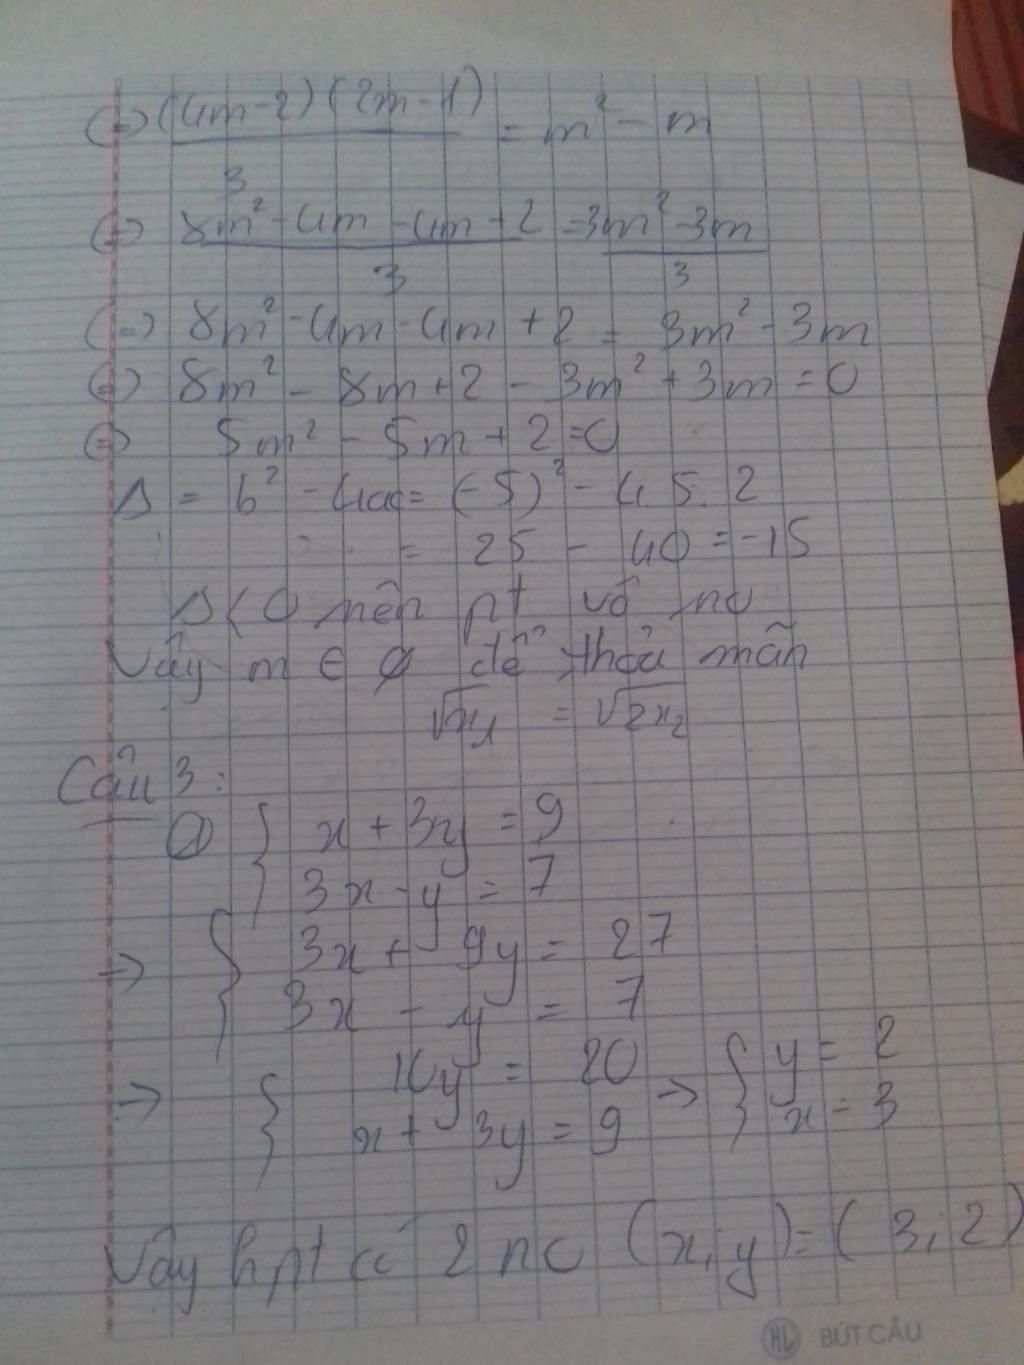 (=) (4m-2)(2m-1)/3 = m² - m
(=) 8m² - 4m - 4m + 2/3 = 3m² - 3m/3
(=) 8m² - 4m - 4m + 2 = 3m² - 3m
(=) 8m² - 8m + 2 - 3m² + 3m = 0
(=) 5m² - 5m + 2 = 0
Δ = b² - 4ac = (-5)² - 4.5.2
= 25 - 40 = -15
Δ < 0 nên pt vô no
Vậy m ∈ ∅ để thỏa mãn
√x₁ = √2x₂
Câu 3:
a) { x + 3y = 9
3x - y = 7
→ { 3x + 9y = 27
3x - y = 7
→ { 10y = 20 → { y = 2
x + 3y = 9 x = 3
Vậy hpt có 2 no (x; y) = (3; 2)
HL BÚT CẬU